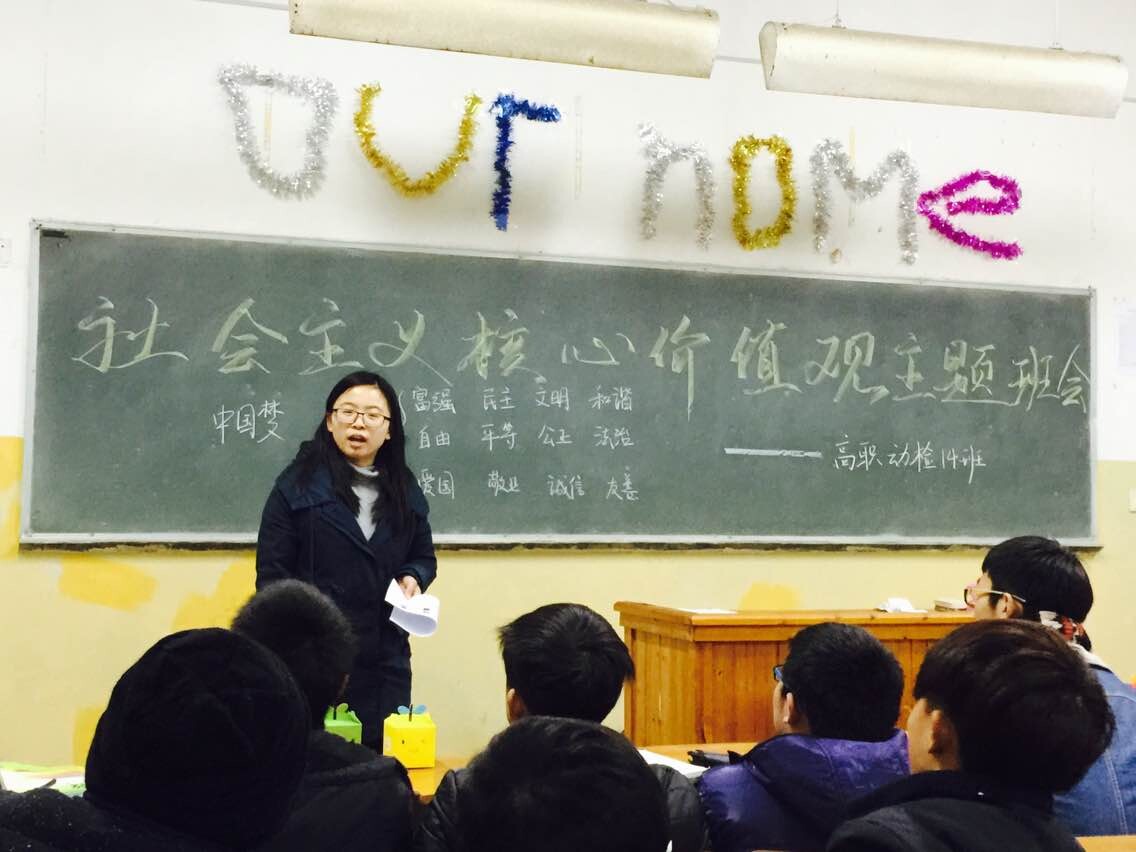 OUr hoMe
社会主义核心价值观主题班会
中国梦
富强 民主 文明 和谐
自由 平等 公正 法治
爱国 敬业 诚信 友善
——高职动检14班